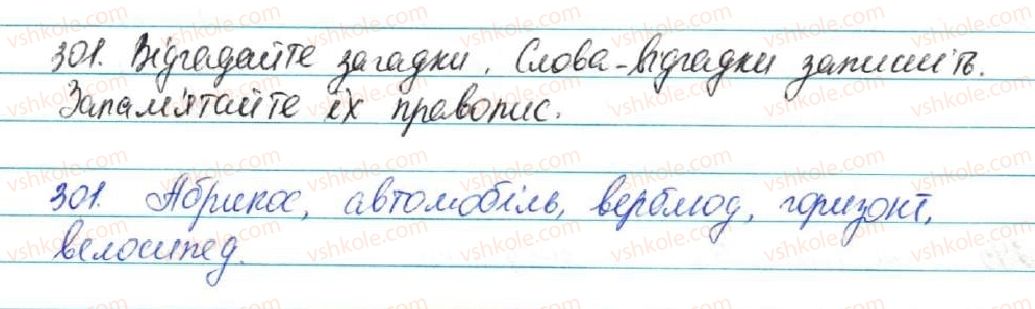 301. Відгадайте загадки. Слова-відгадки запишіть.
Запам'ятайте їх правопис.
301. Абрикос, автомобіль, верблюд, горизонт,
велосипед.